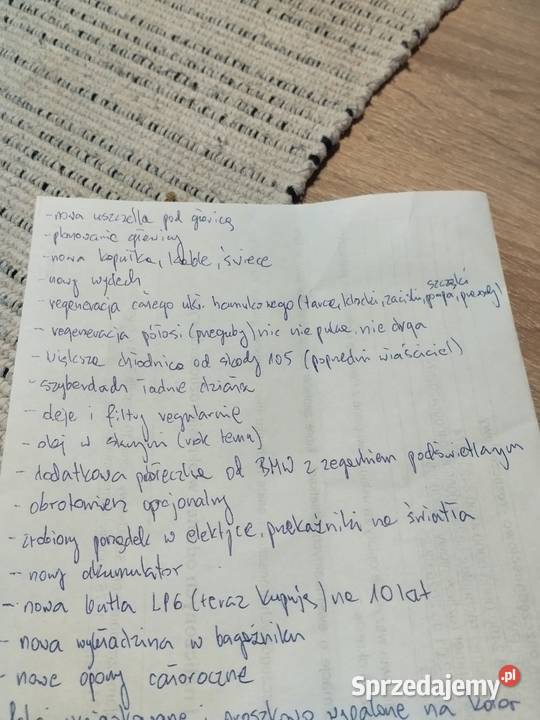 - nowa uszczelka pod głowicą
- planowanie głowicy
- nowa kopułka, kable, świece
- nowy wydech
szczęki
- regeneracja całego ukł. hamulcowego (tarcze, klocki, zaciski, pompa, przewody)
- regeneracja półosi (przeguby) nic nie puka, nie drga
- większa chłodnica od skody 105 (poprzedni właściciel)
- szyberdach ładnie działa
- oleje i filtry regularnie
- olej w skrzyni (rok temu)
- dodatkowa półeczka od BMW z zegarkiem podświetlanym
- obrotomierz opcjonalny
- zrobiony porządek w elektryce, przekaźniki na światła
- nowy akumulator
- nowa butla LPG (teraz kupuję) na 10 lat
- nowa wykładzina w bagażniku
- nowe opony całoroczne
i proszkowo na kolor
Sprzedajemy.pl